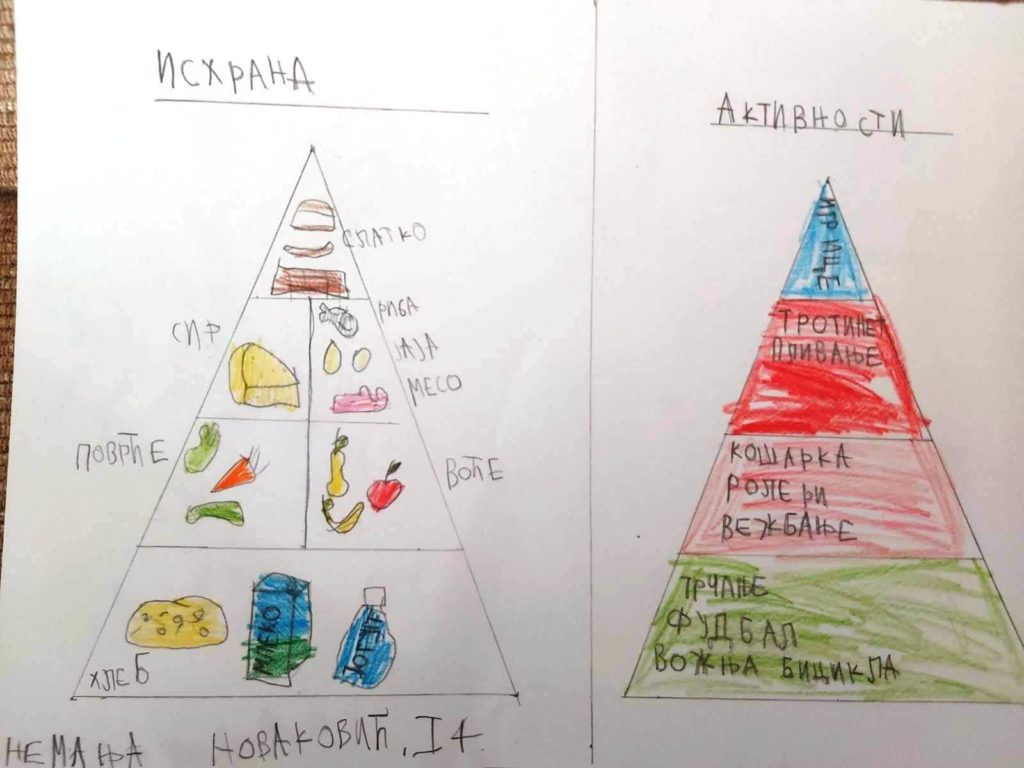 ИСХРАНА
СЛАТКО
РИБА
СИР
ЈАЈА
МЕСО
ПОВРЋЕ
ВОЋЕ
МЛЕКО
ЈОГУРТ
ХЛЕБ
НЕМАЊА НОВАКОВИЋ, I 4.
АКТИВНОСТИ
ТРОТИНЕТ
ПЛИВАЊЕ
КОШАРКА
РОЛЕРИ
ВЕЖБАЊЕ
ТРЧАЊЕ
ФУДБАЛ
ВОЖЊА БИЦИКЛА